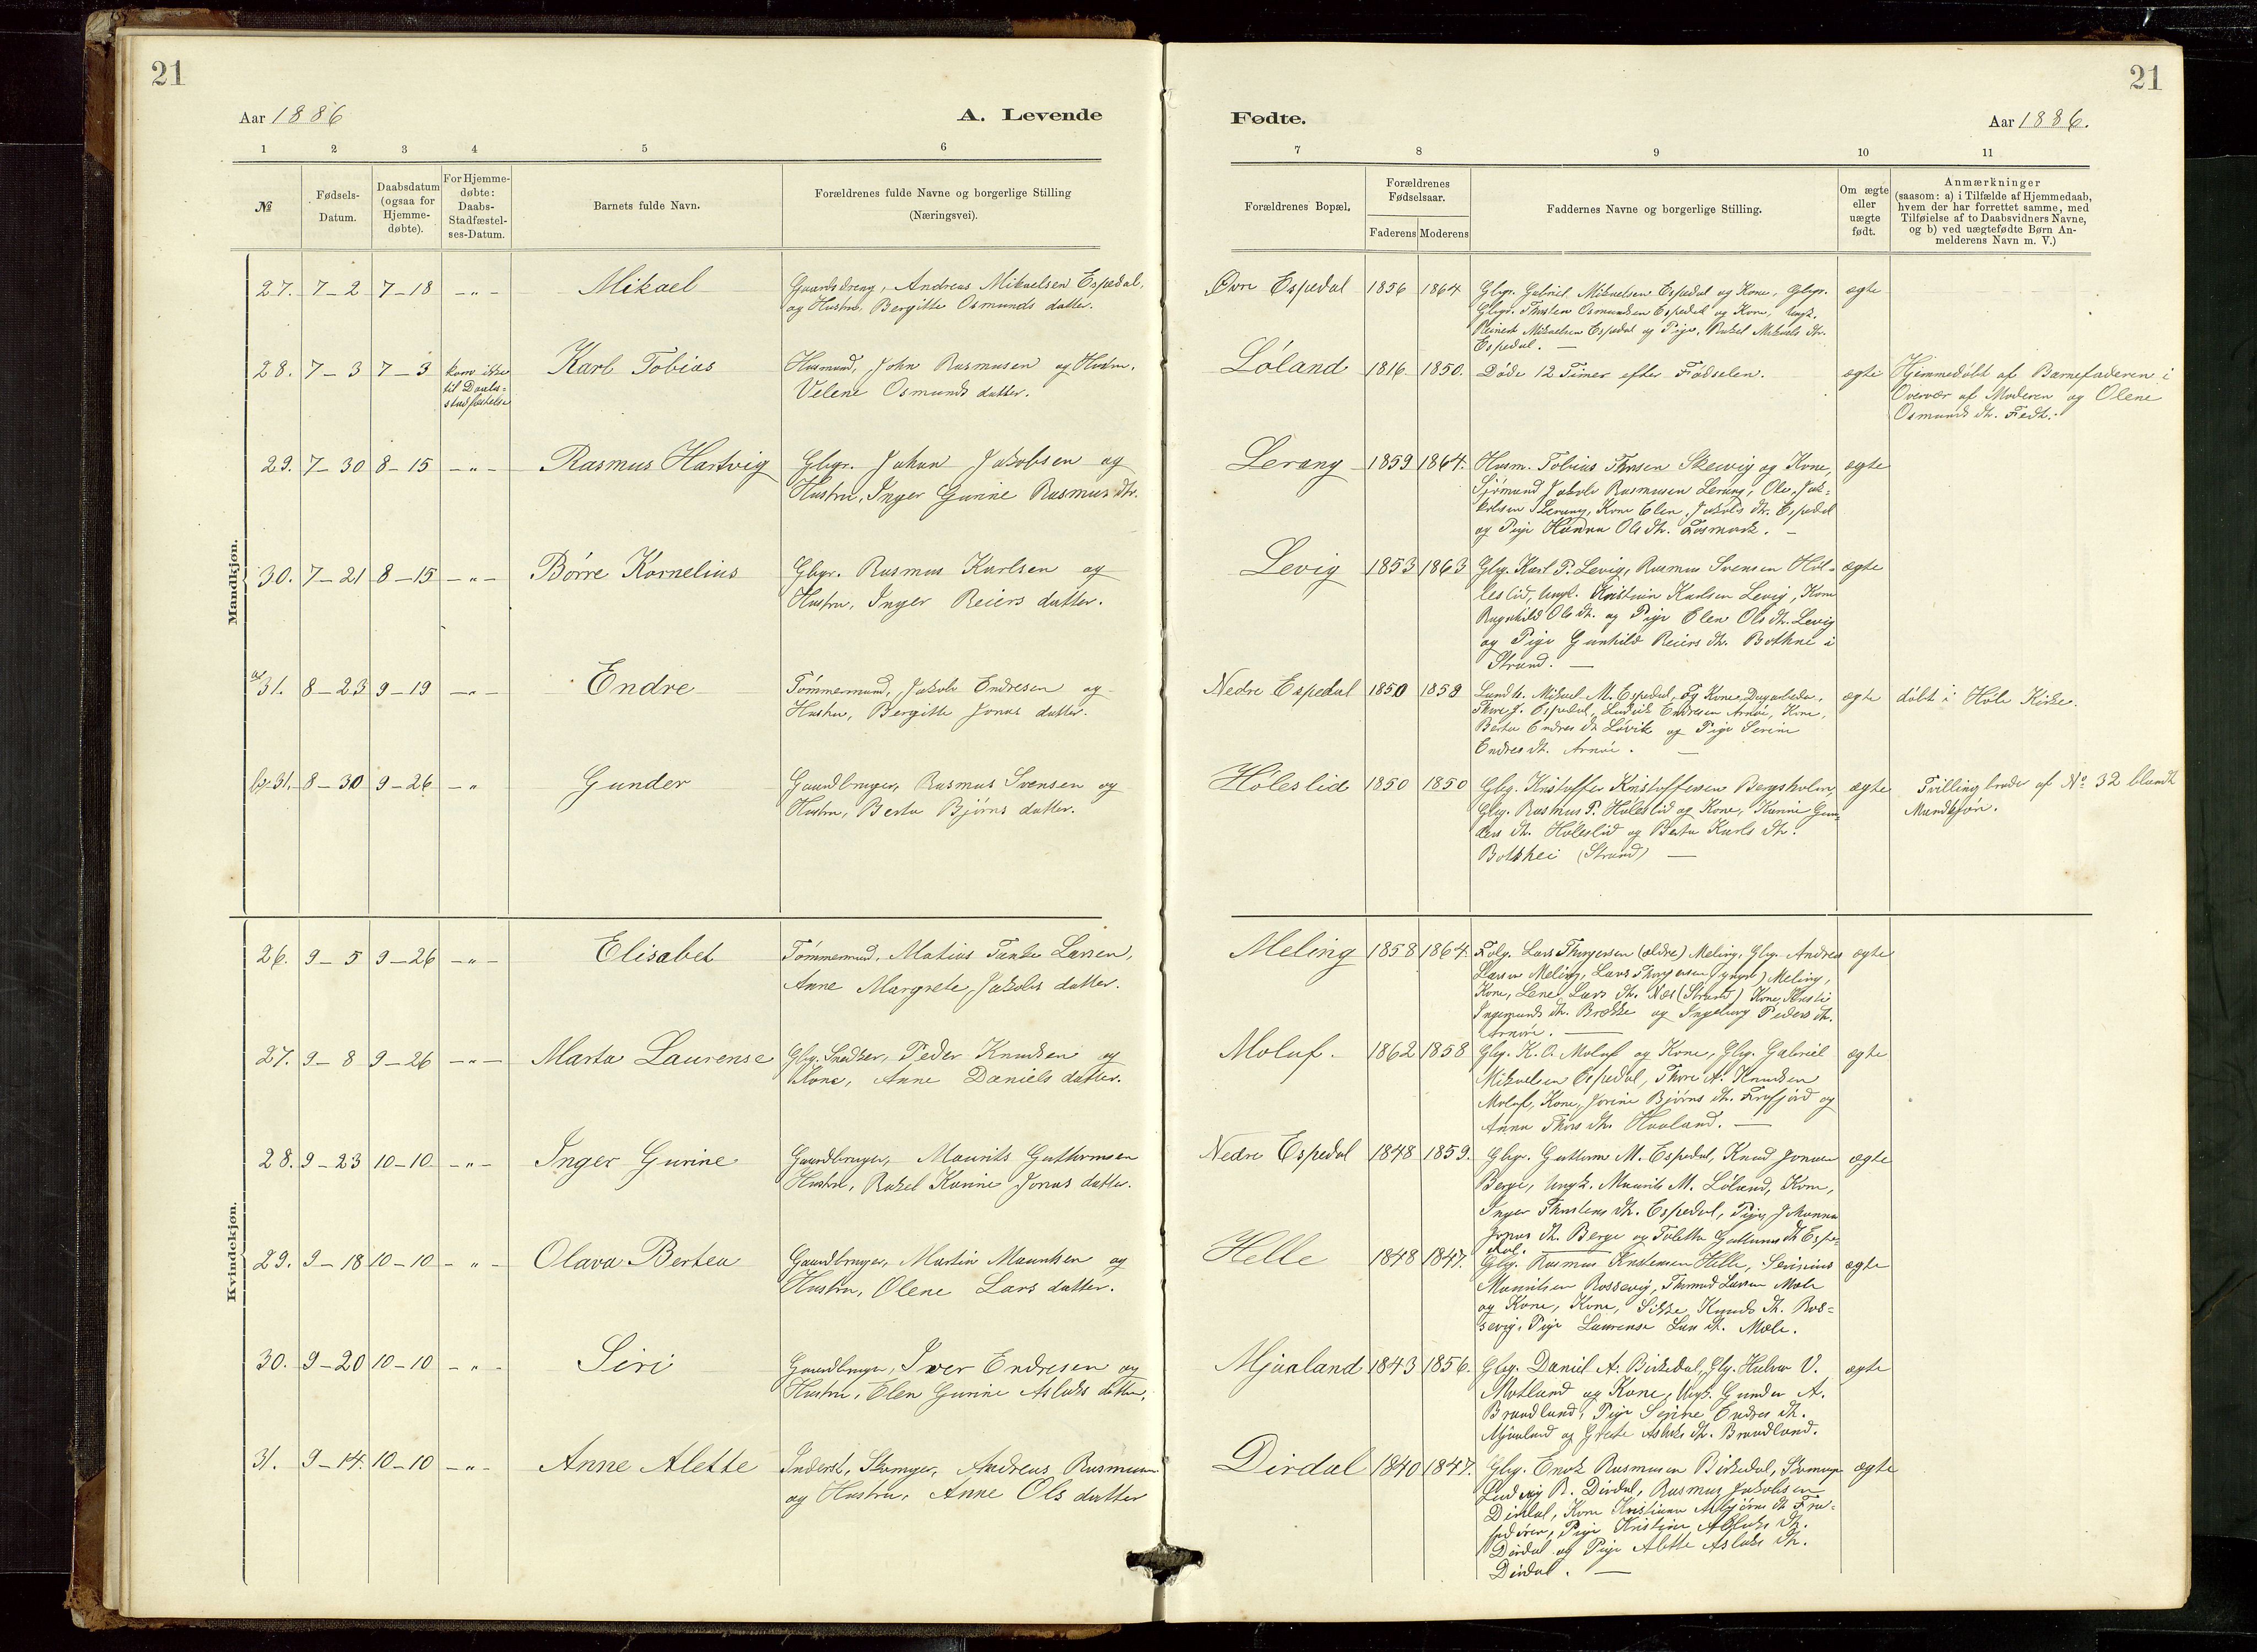 21
Aar 1886
A. Levende
1 2 3 4 5 6
№
Fødsels-
Datum.
Daabsdatum
(ogsaa for
Hjemme-
døbte).
For Hjemme-
døbte:
Daabs-
Stadfæstel-
ses-Datum.
Barnets fulde Navn.
Forældrenes fulde Navne og borgerlige Stilling
(Næringsvei).
Mandkjøn.
27. 7-2 7-18 -„- Mikael
Gaardsdreng, Andreas Mikaelsen Espedal,
og Hustru, Bergitte Osmunds datter.
28. 7-3 7-3
kom ikke
til Daabs=
stadfæstelse
Karl Tobias
Husmand, John Rasmussen og Hustru,
Velene Osmunds datter.
29. 7-30 8-15 -„- Rasmus Hartvig
Gbgr. Johan Jakobsen og
Hustru, Inger Gurine Rasmus dtr.
30. 7-21 8-15 -„- Børre Kornelius
Gbgr. Rasmus Karlsen og
Hustru, Inger Reiers datter.
a) 31. 8-23 9-19 -„- Endre
Tømmermand, Jakob Endresen og
Hustru, Bergitte Jonas datter.
b) 31. 8-30 9-26 -„ Gunder
Gaardbruger, Rasmus Svensen og
Hustru, Berta Bjørns datter.
Kvindekjøn.
26. 9-5 9-26 -„- Elisabet
Tømmermd, Matias Tanke Larsen,
Anne Margrete Jakobs datter.
27. 9-8 9-26 -„- Marta Laurense
Gbg. Snedker, Peder Knudsen og
Kone, Anne Daniels datter.
28. 9-23 10-10 -„- Inger Gurine
Gaardbruger, Maurits Guttormsen
Hustru, Rakel Karine Jonas datter.
29. 9-18 10-10 -„- Olava Bertea
Gaardbruger, Martin Mauritsen og
Hustru, Olene Lars datter.
30. 9-20 10-10 -„- Siri
Gaardbruger, Iver Endresen og
Hustru, Elen Gurine Aslaks datter.
31. 9-14. 10-10 -„- Anne Alette
Inderst, Skomager, Andreas Rasmussen
og Hustru, Anne Ols datter
21
Fødte.
Aar 1886.
7 8 9 10 11
Forældrenes Bopæl.
Forældrenes
Fødselsaar.
Faderens Moderens
Faddernes Navne og borgerlige Stilling.
Om ægte
eller
uægte
født.
Anmærkninger
(saasom: a) i Tilfælde af Hjemmedaab,
hvem der har forrettet samme, med
Tilføielse af to Daabsvidners Navne,
og b) ved uægtefødte Børn An-
melderens Navn m. V.)
Øvre Espedal 1856 1864
Gbgr. Gabriel Mikaelsen Espedal og Kone, Gbgr.
Gbgr. Thorsten Osmundsen Espedal og Kone, Ungk.
Reinert Mikaelsen Espedal og Pige, Rakel Mikaels dtr.
Espedal. —
ægte
Løland 1816. 1850. Døde 12 Timer efter Fødselen. ægte
Hjemmedøbt af Barnefaderen i
Overvær af Moderen og Olene
Osmunds dtr. Fredt.
Lerang 1859 1864.
Husm. Tobias Thorsen Skeivig og Kone,
Sjømand Jakob Rasmusen Lerang, Ole Jak=
kobsen Lerang, Kone Elen Jakobs dtr. Espedal
og Pige Hanna Ols dtr. Fosmark. —
ægte
Levig 1853 1863
Gbg. Karl P. Levig, Rasmus Svensen Høl=
leslid, Ungk. Kristian Karlsen Levig, Kone
Ragnhild Ols dtr. og Pige Elen Ols dtr. Levig
og Pige Gunhild Reiers dtr. Bothne i
Strand. —
ægte
Nedre Espedal 1850 1859
Landh. Mikael M. Espedal, og Kone, Dagarbeider,
Thore J. Espedal, Ludvik Endresen Arnøe, Kone,
Berta Endres dtr Løvik og Pige Serine
Endres dtr. Arnøe. —
ægte døbt i Høle Kirke.
Høleslid 1850 1850
Gbg. Kristoffer Kristoffersen Bergsholm,
Gbg. Rasmus P. Høleslid og Kone, Karine Gun=
ders dtr. Høleslid og Berta Karls dtr.
Botshei (Strand) —
ægte
Tvillingbroder af No 32 blandt
Mandkjøn.
Meling 1858 1864.
Folg. Lars Thorgersen (ældre) Meling, Gbg. Andreas
Larsen Meling, Lars Thorgersen (yngre) Meling,
Kone, Lene Lars dtr. Nes (Strand) Kone, Kristi
Ingemunds dtr. Brekke og Ingeborg Peders dtr.
Arnøe. —
ægte
Moluf. 1862 1858
Gbg. K. O. Moluf og Kone, Gbg. Gabriel
Mikaelsen Espedal, Thore A. Knudsen
Moluf, Kone, Jorine Bjørns dtr. Frafjord og
Anna Thors dtr. Haaland. —
ægte
Nedre Espedal 1848 1859.
Gbgr. Guttorm M. Espedal, Knud Jonsen
Berge, Ungk. Maurits M. Løland, Kone,
Inger Thorstens dtr. Espedal, Pige, Johanna
Jonas dtr. Berge og Toletta Guttorms dtr Espe=
dal.
ægte
Helle 1848 1847.
Gbg. Rasmus Kristensen Helle, Severinus
Mauritsen Rossevig, Thormod Larsen Mæle
og Kone, Kone, Sikke Knuds dtr. Ros=
sevig, Pige Laurense Lars dtr. Mæle.
ægte
Mjaaland 1843 1856.
Gbg. Daniel A. Birkedal, Gbg. Halvor V.
Motland og Kone, Ungk. Gunder A.
Brandland, Pige Serine Endres dtr.
Mjaaland og Grete Aslaks dtr. Brandland.
ægte
Dirdal 1840 1847.
Gbg. Enok Rasmusen Birkedal, Skomager
Ludvig R. Dirdal, Rasmus Jakobsen
Dirdal, Kone Kristiana Asbjørns dtr Fra=
Pige Kristine Aslaks dtr.
Dirdal og Pige Alette Aslaks dtr.
Dirdal. —
ægte